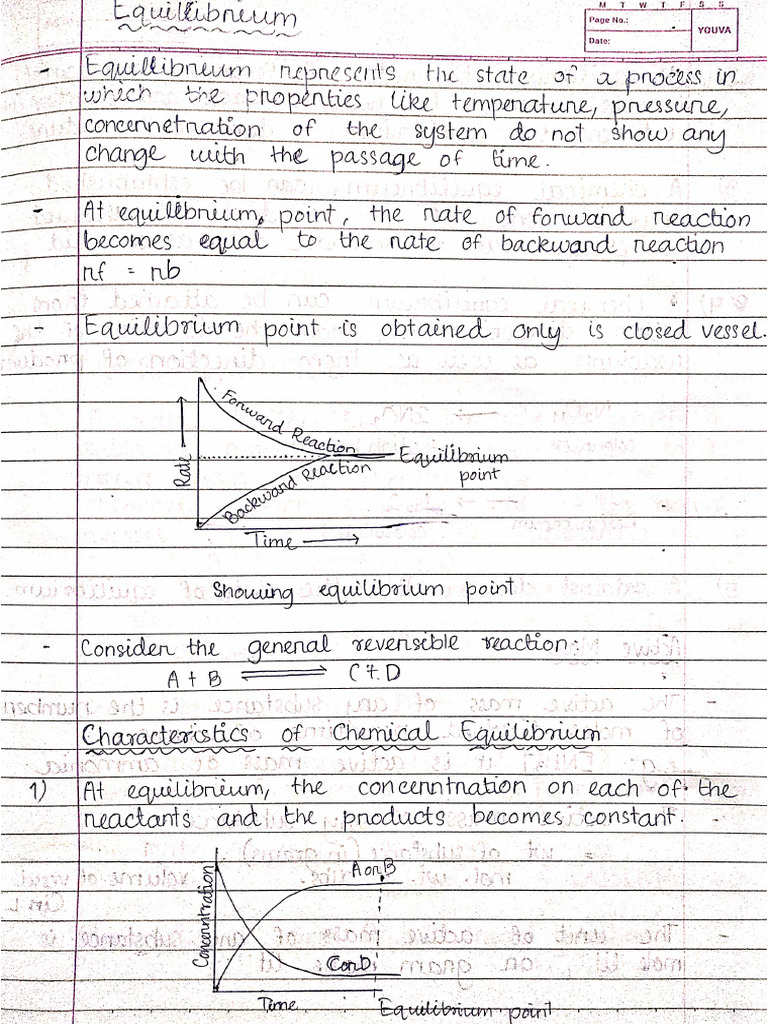 Equilibrium
M T W T F S S
Page No.:
YOUVA
Date:
- Equilibrium represents the state of a process in
which the properties like temperature, pressure,
concennetration of the system do not show any
change with the passage of time.
- At equilibrium, point, the rate of forward reaction
becomes equal to the rate of backward reaction
rf = rb
- Equilibrium point is obtained only is closed vessel.
Rate
Forward Reaction
Backward Reaction
Equilibrium
point
Time
Showing equilibrium point
- Consider the general reversible reaction.
A + B ⇌ C + D
Characteristics of Chemical Equilibrium
1) At equilibrium, the concenntration on each of the
reactants and the products becomes constant.
Concenntration
A or B
C or D
Time
Equilibrium point